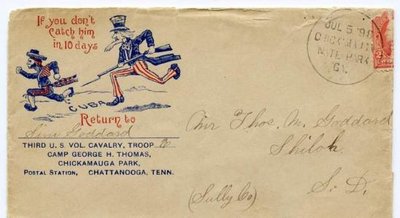 If you don't
catch him
in 10 days
CUBA
Return to
Goddard
THIRD U. S. VOL. CAVALRY, TROOP
CAMP GEORGE H. THOMAS,
CHICKAMAUGA PARK,
POSTAL STATION, CHATTANOOGA, TENN.
JUL 5 '98
NATL PARK
GA.
Mr Thos. M. Goddard
Shiloh
(Sully Co)
S. D.